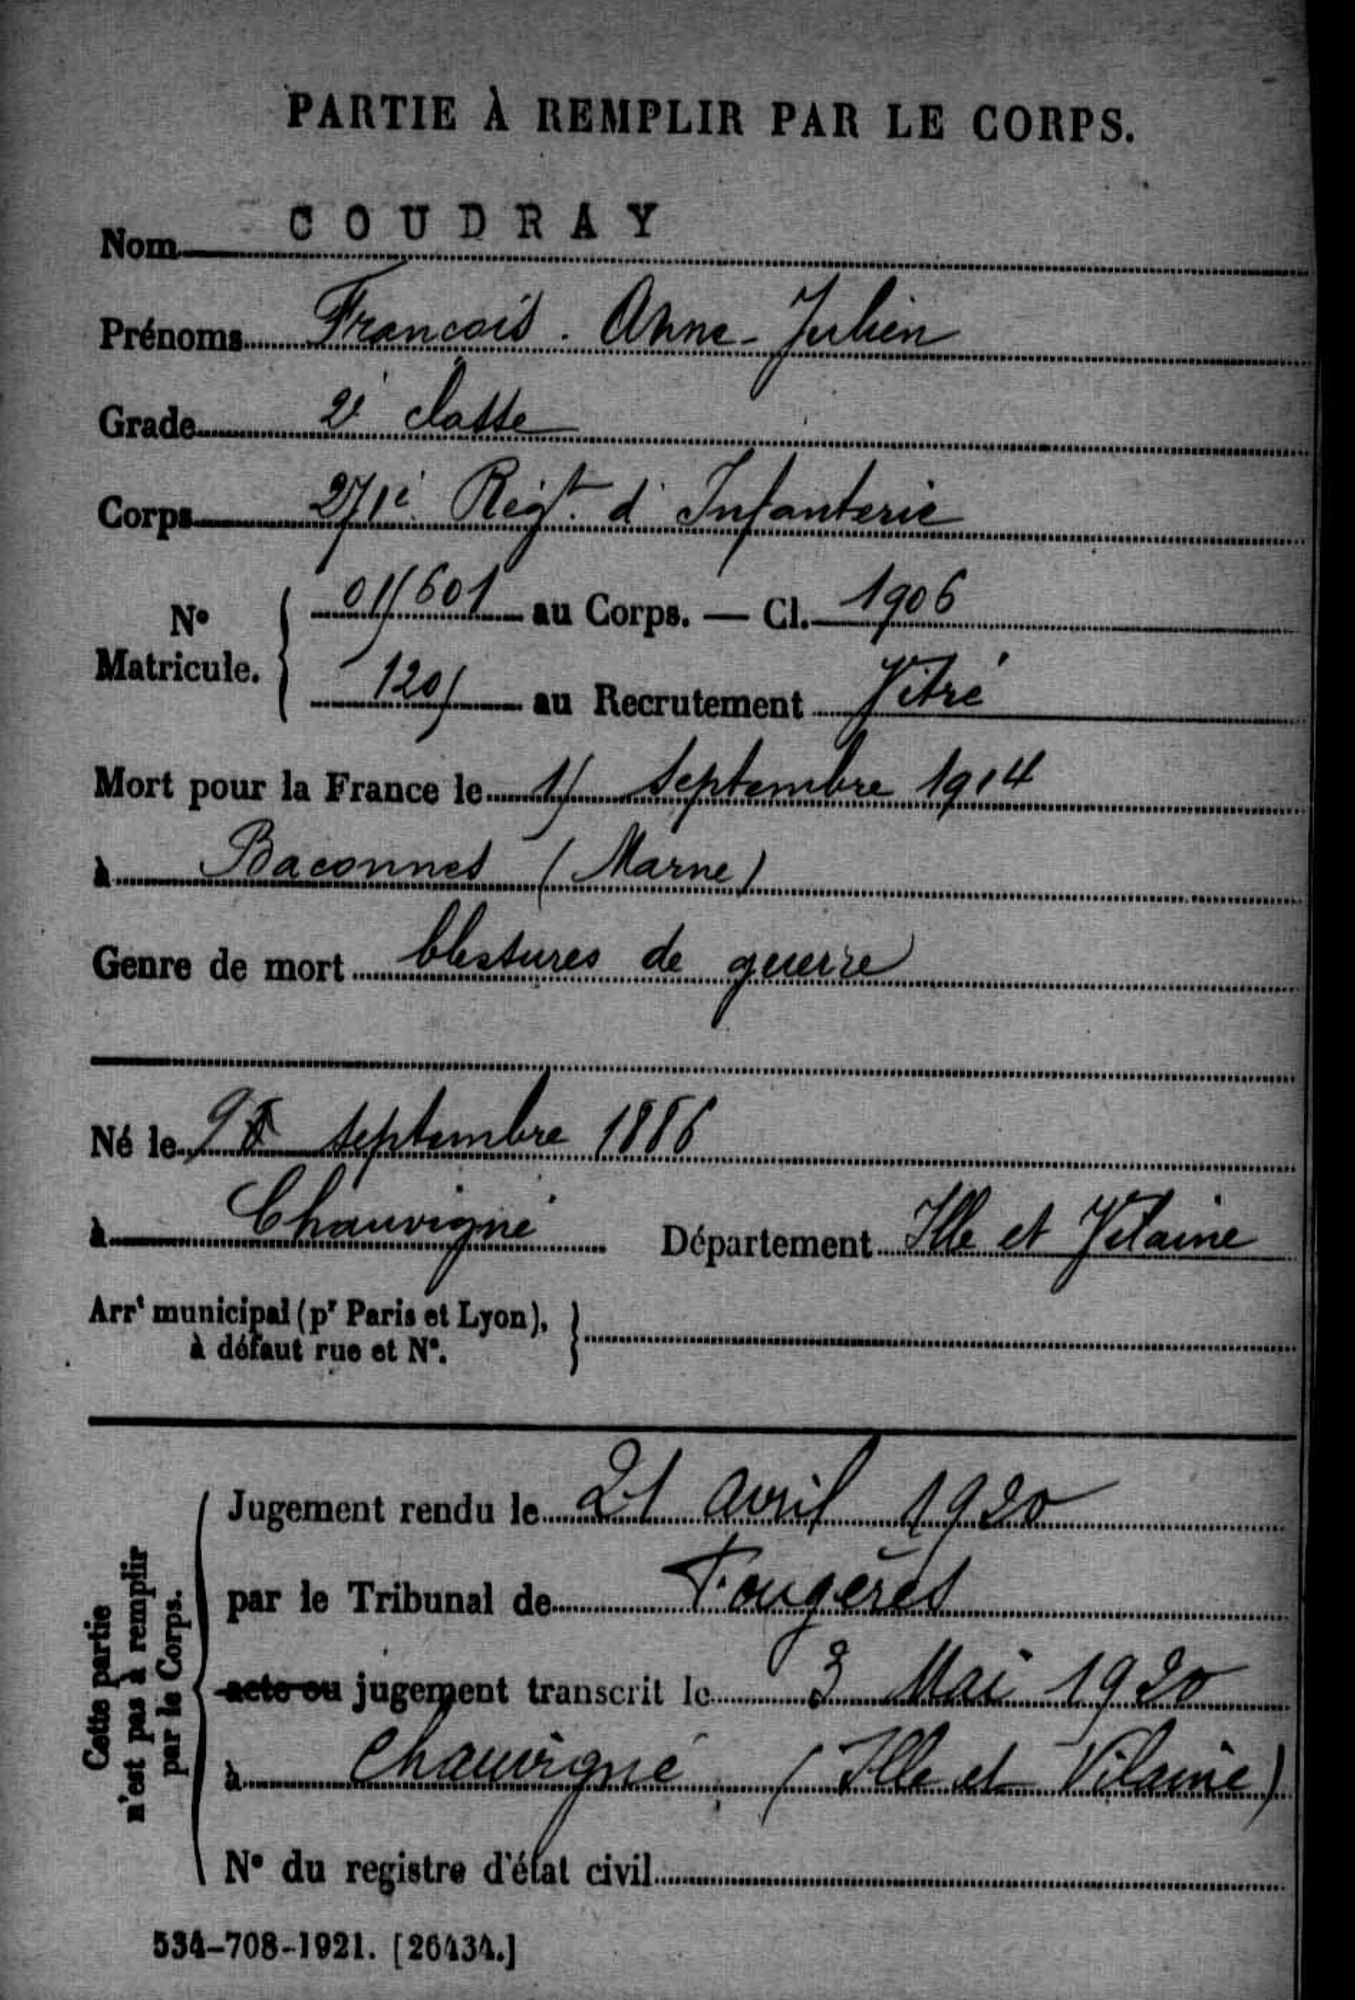 PARTIE À REMPLIR PAR LE CORPS.
Nom COUDRAY
Prénoms François - Anne - Julien
Grade 2e classe
Corps 271e Régt d'Infanterie
No Matricule. 015601 au Corps. — Cl. 1906
1205 au Recrutement Vitré
Mort pour la France le 15 septembre 1914
à Baconnes (Marne)
Genre de mort blessures de guerre
Né le septembre 1886
à Chauvigné Département Ille et Vilaine
Arrt municipal (pr Paris et Lyon),
à défaut rue et No.
Cette partie
n'est pas à remplir
par le Corps.
Jugement rendu le 21 avril 1920
par le Tribunal de Fougères
acte ou jugement transcrit le 3 Mai 1920
à Chauvigné (Ille et Vilaine)
No du registre d'état civil
534-708-1921. [26434.]